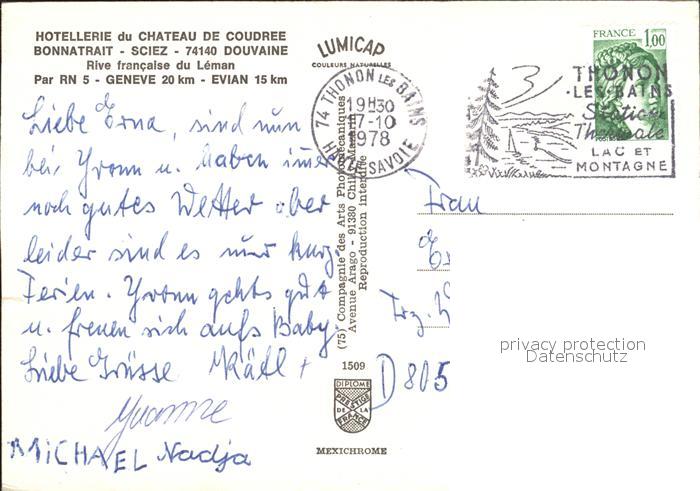 HOTELLERIE du CHATEAU DE COUDREE
BONNATRAIT - SCIEZ - 74140 DOUVAINE
Rive française du Léman
Par RN 5 - GENEVE 20 km - EVIAN 15 km
LUMICAP
COULEURS NATURELLES
74 THONON LES BAINS
19H30
17-10
1978
HTE SAVOIE
FRANCE
1,00
THONON
-LES-BAINS
Station
Thermale
LAC ET
MONTAGNE
Liebe Erna, sind nun
bei Yvonn u. haben immer
noch gutes Wetter aber
leider sind es nur kurz
Ferien. Yvonn gehts gut
u. freuen sich aufs Baby
Liebe Grüsse Kätl +
Yvonne
MICHAEL Nadja
(75) Compagnie des Arts Photomécaniques
Avenue Arago - 91380 Chilly-Mazarin
Reproduction interdite
1509
DIPLOME
PRESTIGE
DE LA
FRANCE
MEXICHROME
Frau
D 805
privacy protection
Datenschutz